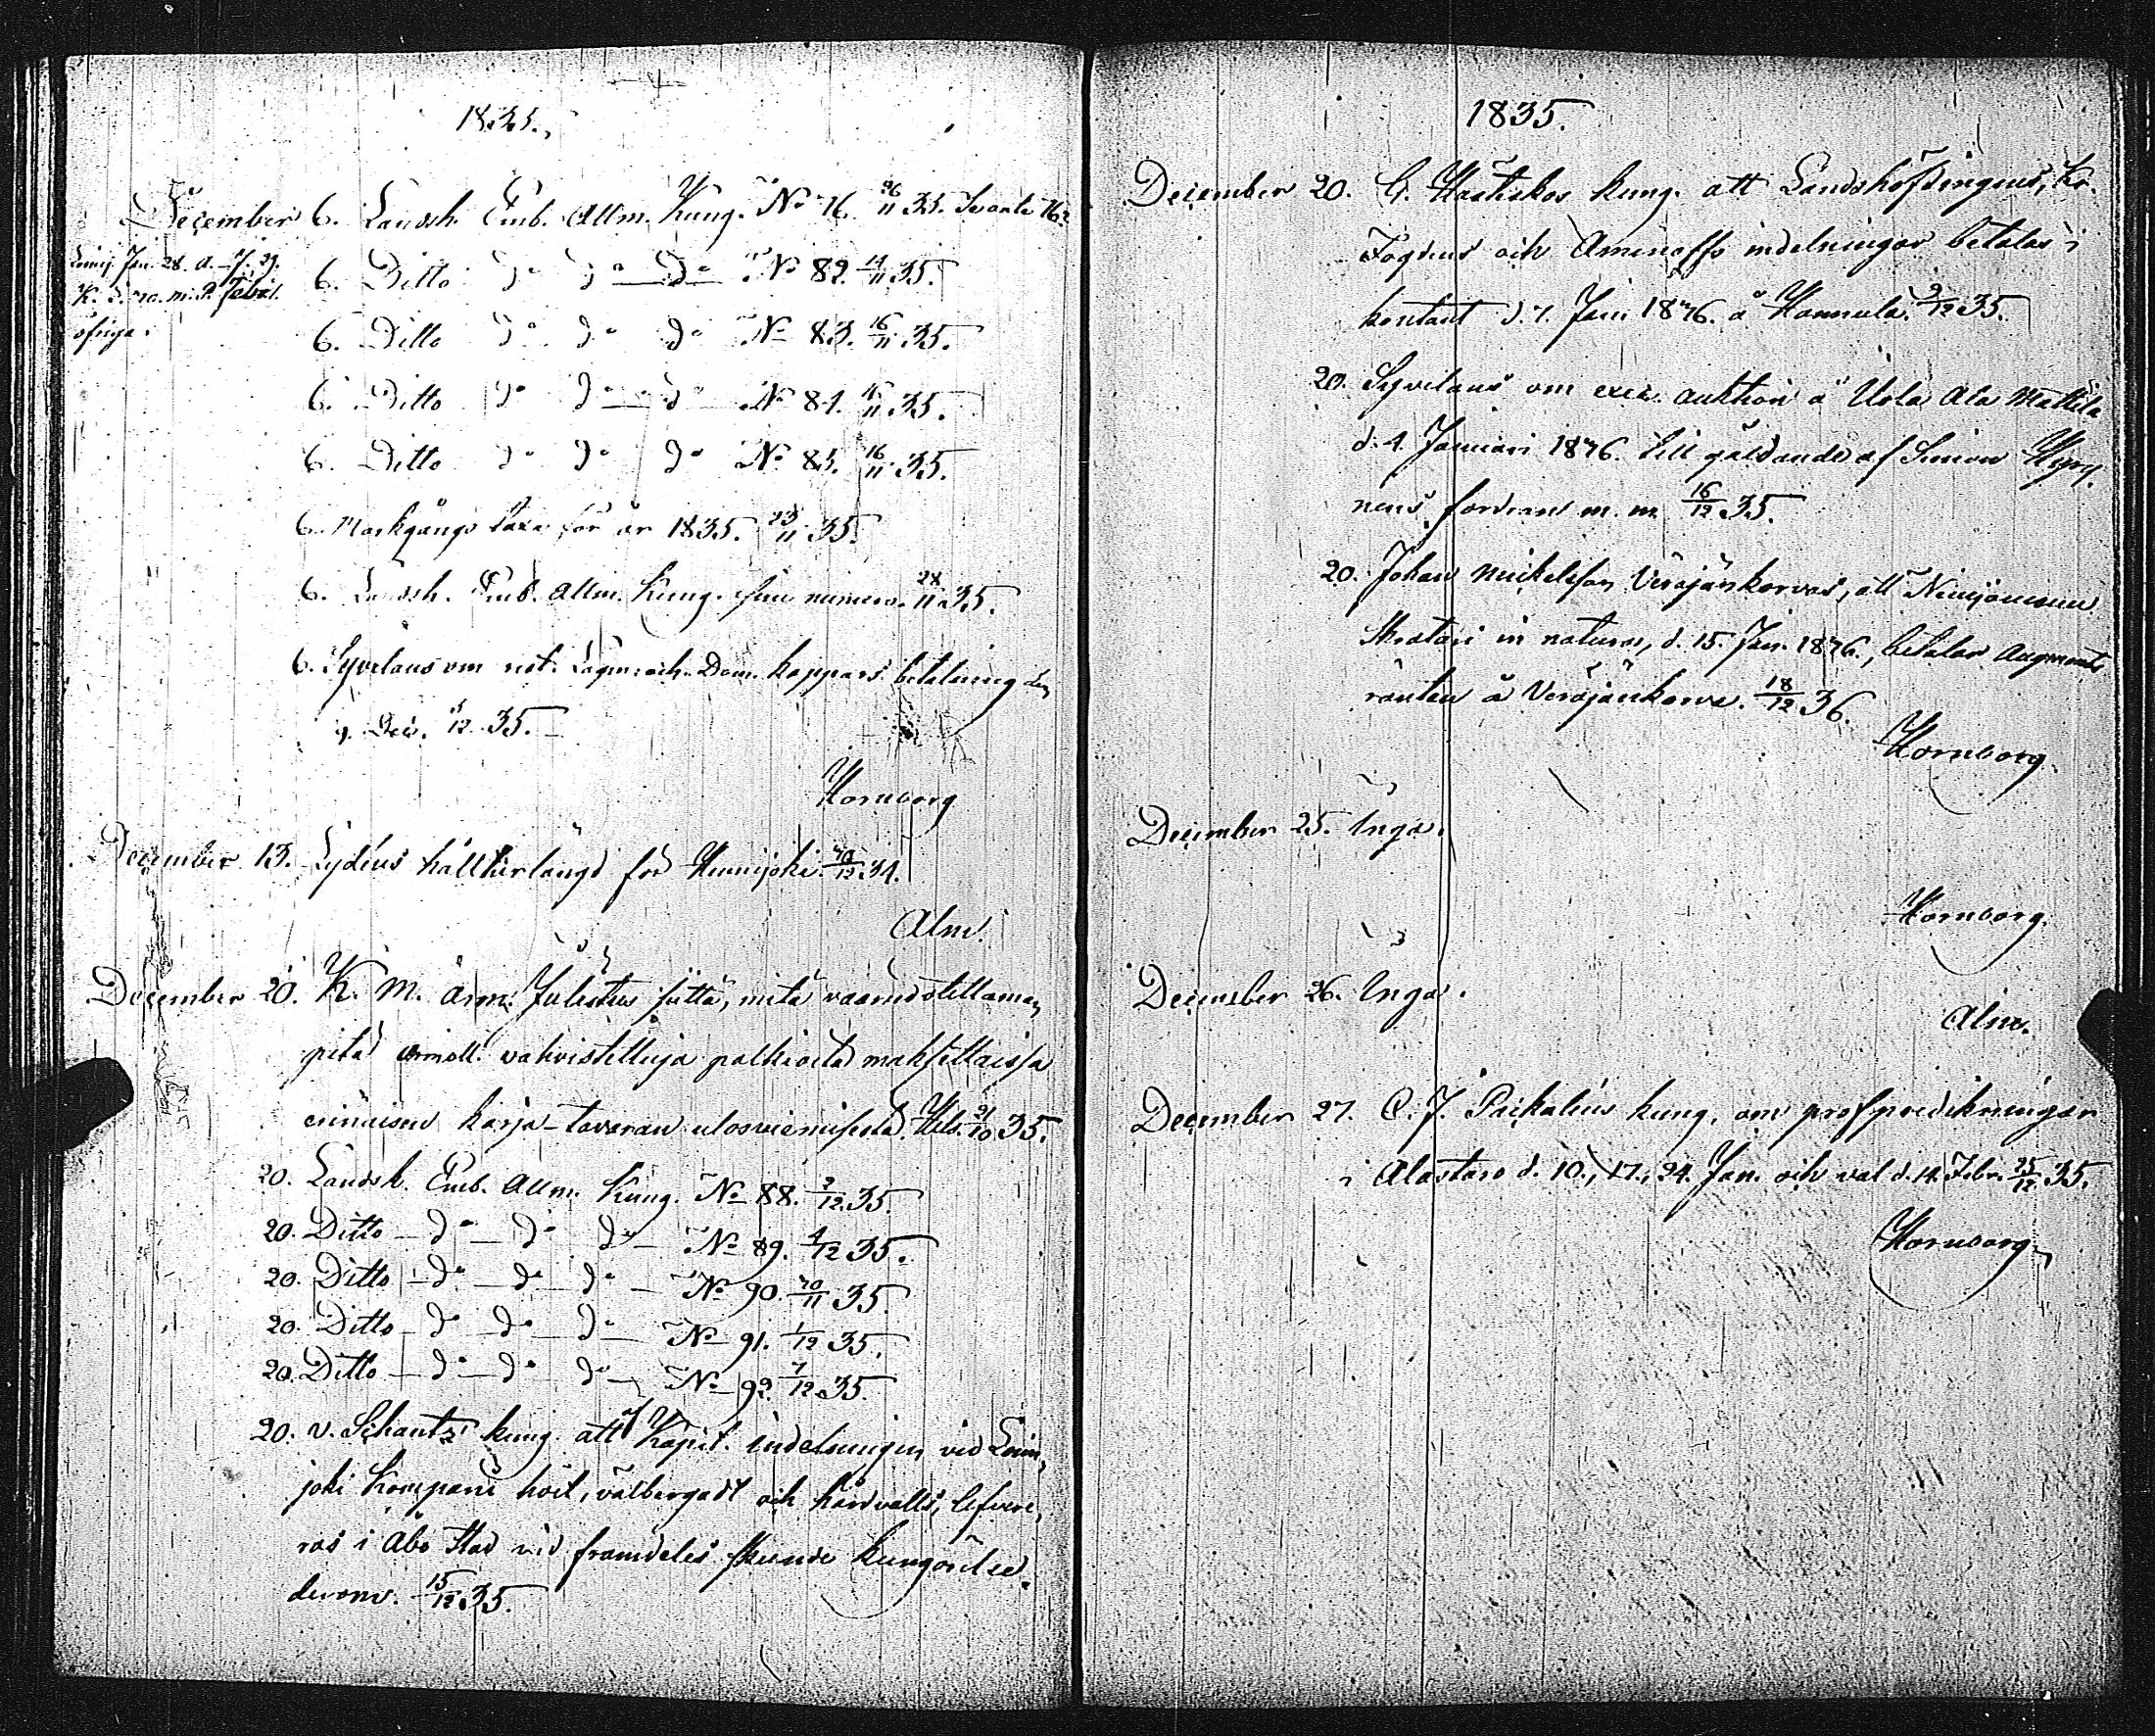 1835.
December 6. Landsh. Emb. Allm. Kung. No 76. 26/11 35.
6. Ditto do do do No 82. 14/11 35.
6. Ditto do do do No 83. 16/11 35.
6. Ditto do do do No 84. 16/11 35.
6. Ditto do do do No 85. 16/11 35.
6. Markgångs taxa för år 1835. 23/11 35.
6. Landsh. Emb. Allm. Kung. sine numero. 28/11 35.
6. Syvelaus om Lagm. och Dom. kappars betalning den
9. Dec. 35.
Hornborg
December 13. Lydéns hållskjutslängd för 34.
Alm.
December 20. K. M. arm. Julistus siitä, mitä vaarinotettaman
pitä armoll. vahvistettuja palkioita maksettaissa
eninäisen karja-tavaran ulosviemisestä. Hels. 21/10 35.
20. Landsh. Emb. Allm. Kung. No 88. 2/12 35.
20. Ditto do do do No 89. 4/12 35.
20. Ditto do do do No 90. 35.
20. Ditto do do do No 91. 1/12 35.
20. Ditto do do do No 92. 7/12 35.
20. v. Schantz kung. att Kapit. indelningen vid Loim-
joki Kompani höit, välbergadt och hårdvalls, lefvere-
ras i Åbo stad vid framdeles skeende kungörelse
derom. 15/12 35.
1835.
December 20. G. kung. att Landshöfdingens, Kr.
Fogdens och Aminoffs indelningar betalas i
kontant d. 7. Jan. 1836. å Hannula. 9/12 35.
20. Syvelaus om exec. auktion å Uola Ala Mattila
d. 4. Januari 1836. till gäldande af Simon Hyry-
nens fordran m. m. 16/12 35.
20. Johan Mickelsson Veräjänkorvas, att
in natura, d. 15. Jan. 1836., betalar Augments
räntan å Veräjänkorva. 18/12 36.
Hornborg.
December 25. Inga.
Hornborg.
December 26. Inga.
Alm.
December 27. C. J. Paikaléns kung. om profpredikningar
i Alastaro d. 10., 17., 24. Jan. och val d. 14. Febr. 25/12 35.
Hornborg